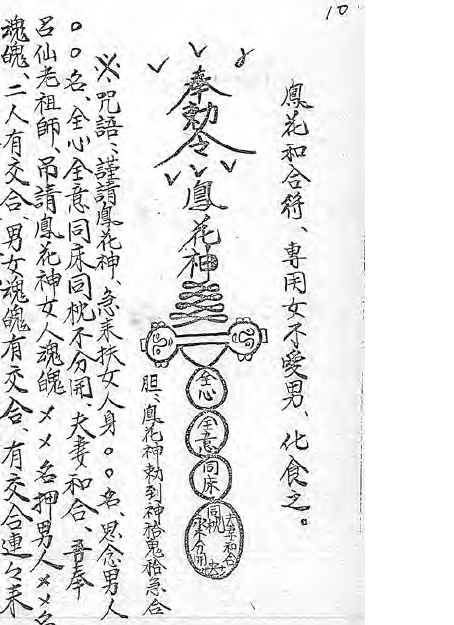 10
鳳花和合符、專用女不愛男、化食之。
奉勅令鳳花神
全心
全意
同床
同枕
夫妻和合
永不分開
胆、鳳花神勅到神㕫鬼㕫急合
※咒語：謹請鳳花神、急來扶女人身。○○名、思念男人
○○名、全心全意同床同枕不分開、夫妻和合、吾奉
呂仙老祖師、吊請鳳花神女人魂魄 ㄨㄨ名押男人ㄨㄨ名
魂魄、二人有交合、男女魂魄有交合、有交合連々來